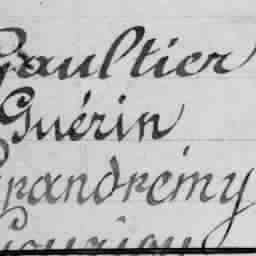 Gaultier
Guérin
Grandrémy